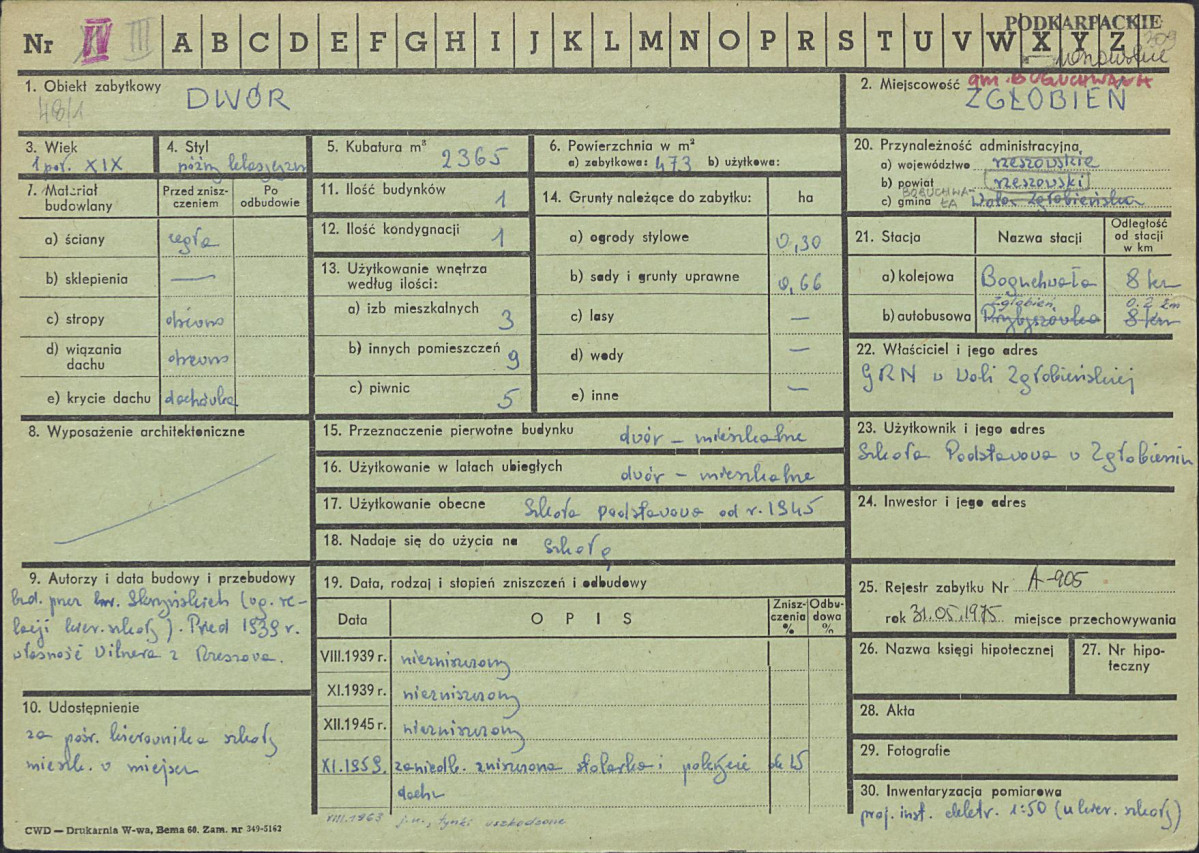 PODKARPACKIE
Nr IV III A B C D E F G H I J K L M N O P R S T U V W X Y Z
gm. BOGUCHWAŁA
1. Obiekt zabytkowy DWÓR
48/1
2. Miejscowość ZGŁOBIEŃ
3. Wiek
1 poł. XIX
4. Styl
późny klasycyzm
5. Kubatura m³ 2365
6. Powierzchnia w m²
a) zabytkowa: 473 b) użytkowa:
7. Materiał budowlany
Przed zniszczeniem
Po odbudowie
a) ściany cegła
b) sklepienia —
c) stropy drewno
d) wiązania dachu drewno
e) krycie dachu dachówka
8. Wyposażenie architektoniczne
9. Autorzy i data budowy i przebudowy
bud. przez hr. Skrzyńskich (wg. re-
lacji kier. szkoły). Przed 1939 r.
własność Wilnera z Rzeszowa.
10. Udostępnienie
za pośr. kierownika szkoły
mieszk. w miejscu
CWD — Drukarnia W-wa, Bema 60. Zam. nr 349-5162
11. Ilość budynków 1
12. Ilość kondygnacji 1
13. Użytkowanie wnętrza
według ilości:
a) izb mieszkalnych 3
b) innych pomieszczeń 9
c) piwnic 5
14. Grunty należące do zabytku: ha
a) ogrody stylowe 0,30
b) sady i grunty uprawne 0,66
c) lasy —
d) wody —
e) inne —
15. Przeznaczenie pierwotne budynku dwór – mieszkalne
16. Użytkowanie w latach ubiegłych dwór – mieszkalne
17. Użytkowanie obecne Szkoła podstawowa od r. 1945
18. Nadaje się do użycia na szkołę
19. Data, rodzaj i stopień zniszczeń i odbudowy
Data
O P I S
Zniszczenia %
Odbudowa %
VIII.1939 r. niezniszczony
XI.1939 r. niezniszczony
XII.1945 r. niezniszczony
XI.1959. zaniedb. zniszczona stolarka i pokrycie ok 15
dachu
VIII.1963 j.w., tynki uszkodzone
20. Przynależność administracyjna
a) województwo rzeszowskie
b) powiat rzeszowski
BOGUCHWA-
ŁA
c) gmina Wola Zgłobieńska
21. Stacja
Nazwa stacji
Odległość od stacji w km
a) kolejowa Boguchwała 8 km
Zgłobień 0.2 km
b) autobusowa Przybyszówka 8 km
22. Właściciel i jego adres
GRN w Woli Zgłobieńskiej
23. Użytkownik i jego adres
Szkoła Podstawowa w Zgłobieniu
24. Inwestor i jego adres
25. Rejestr zabytku Nr A-905
rok 31.05.1975 miejsce przechowywania
26. Nazwa księgi hipotecznej
27. Nr hipoteczny
28. Akta
29. Fotografie
30. Inwentaryzacja pomiarowa
proj. inst. elektr. 1:50 (u kier. szkoły)